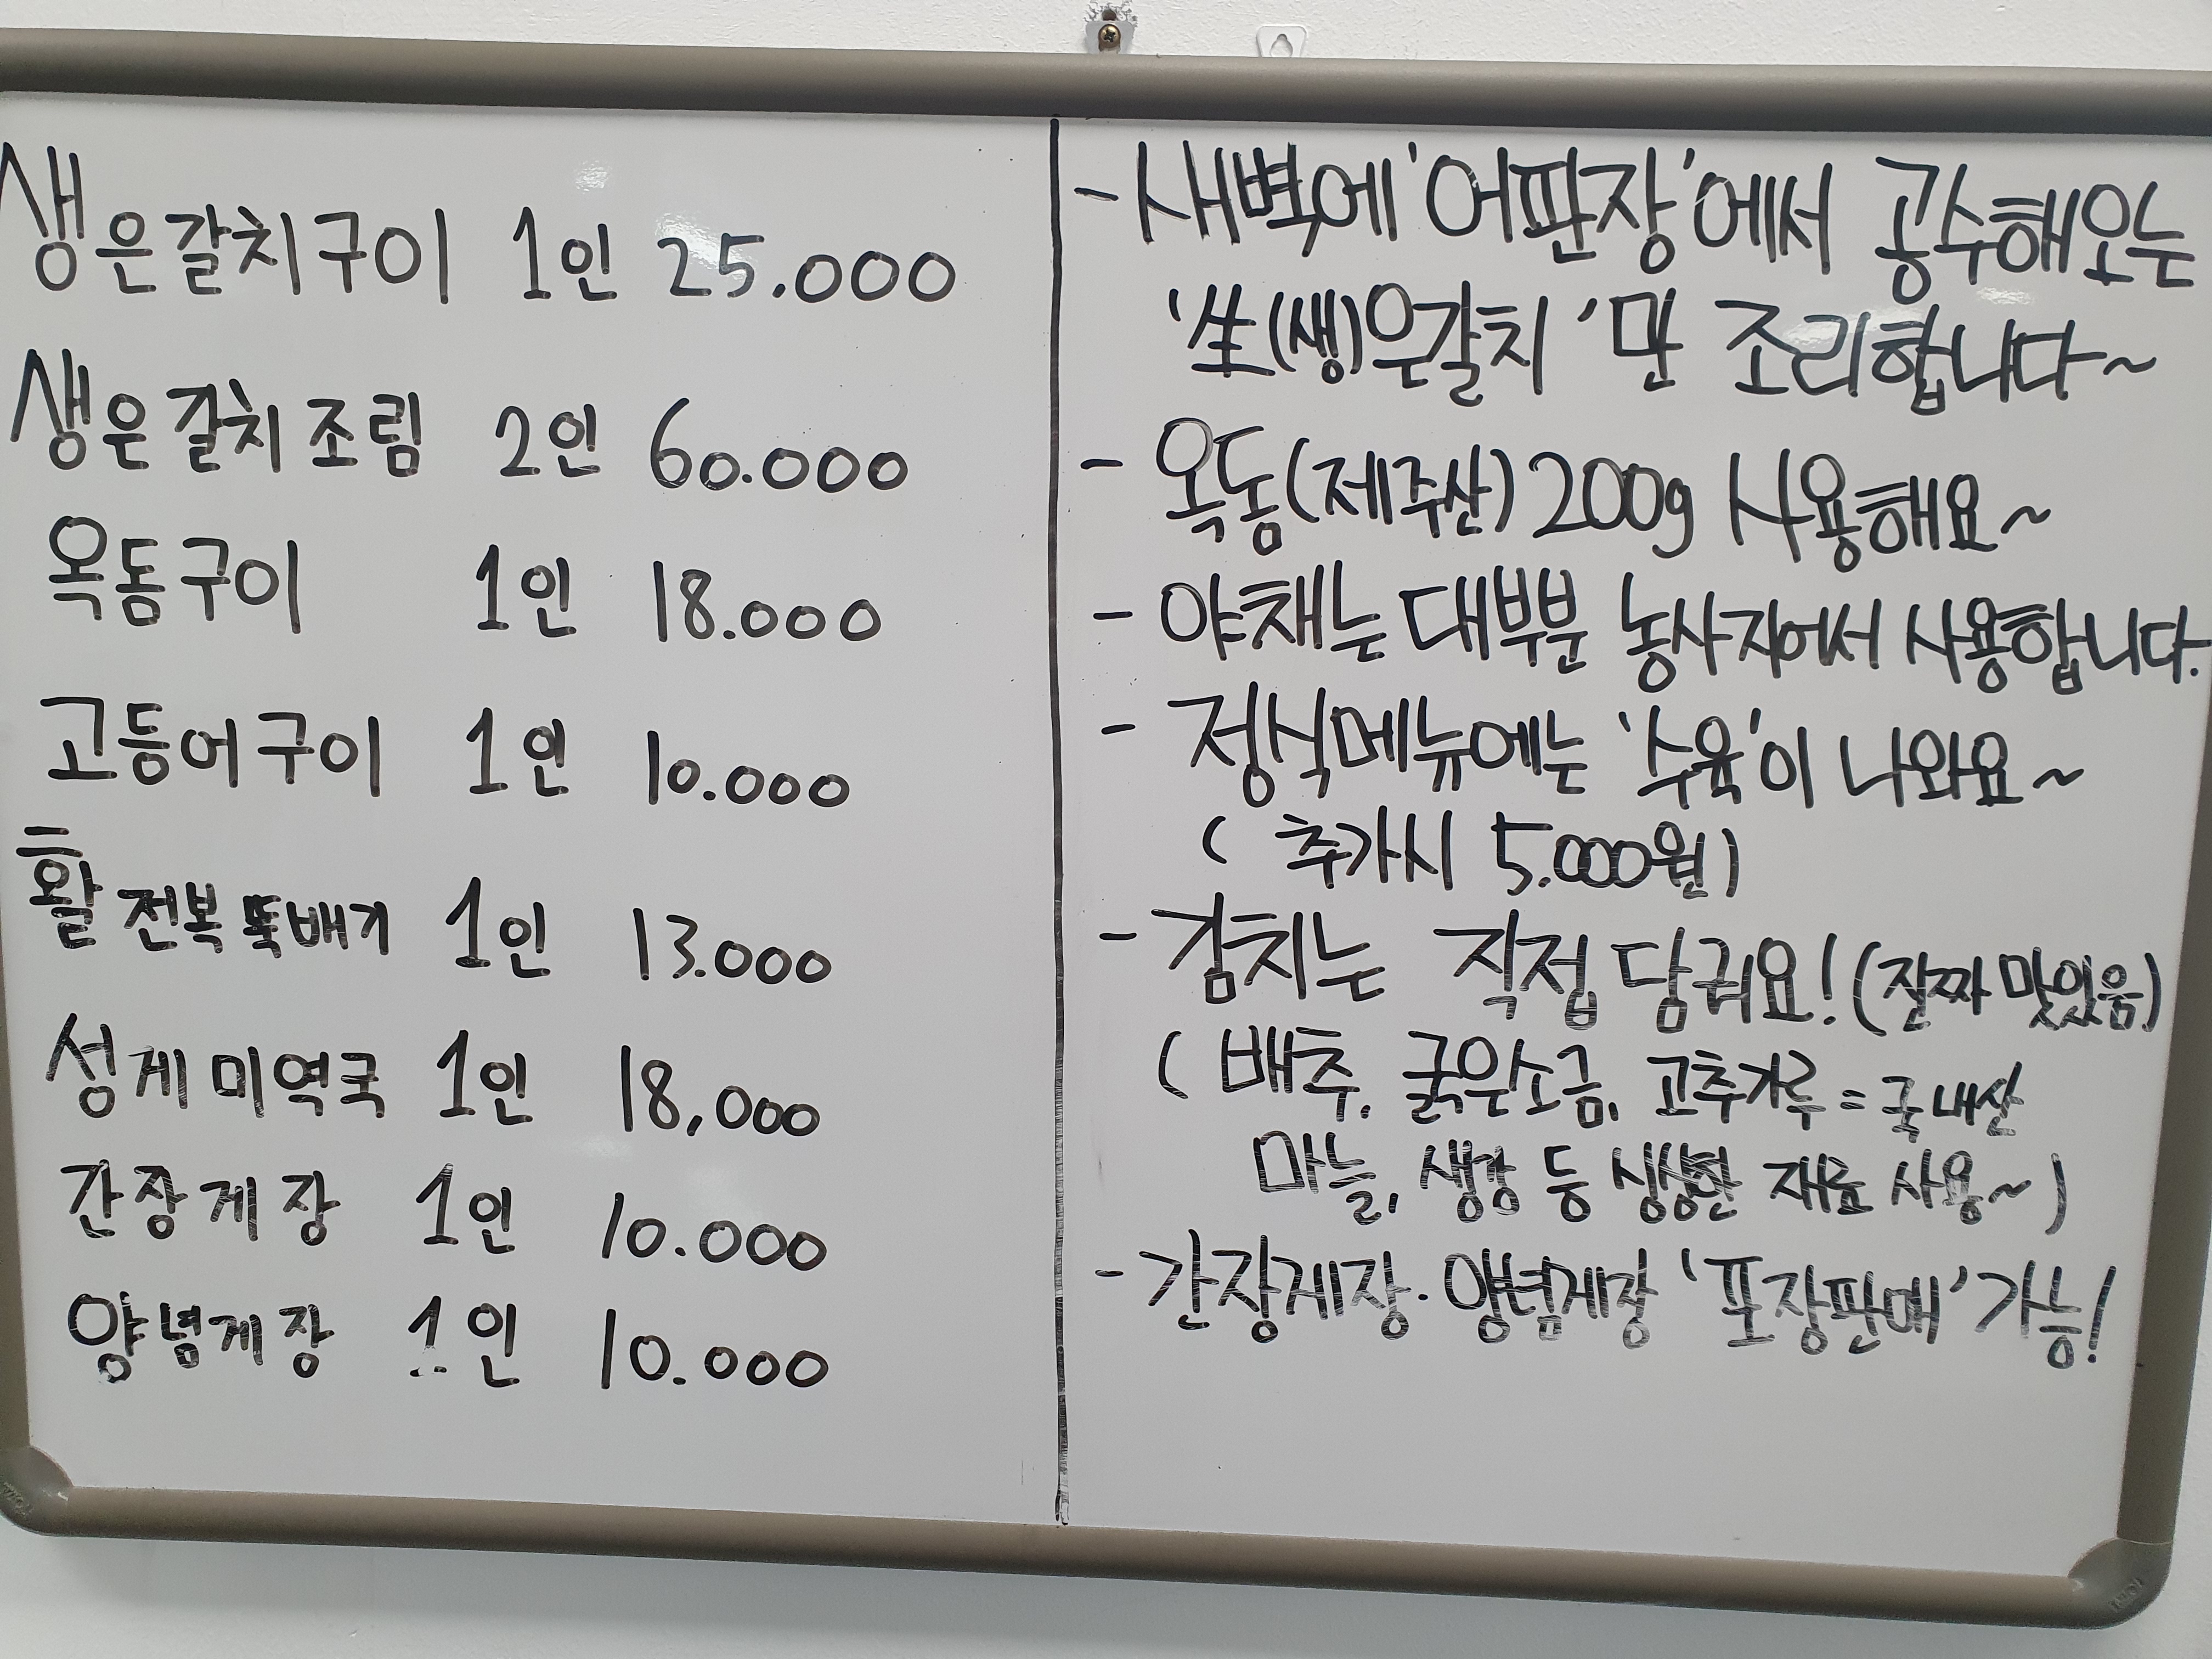 생은갈치구이 1인 25.000
생은갈치조림 2인 60.000
옥돔구이 1인 18.000
고등어구이 1인 10.000
활전복뚝배기 1인 13.000
성게미역국 1인 18,000
간장게장 1인 10.000
양념게장 1인 10.000
- 새벽에 '어판장'에서 공수해오는
'生(생)은갈치'만 조리합니다~
- 옥돔(제주산) 200g 사용해요~
- 야채는 대부분 농사지어서 사용합니다.
- 정식메뉴에는 '수육'이 나와요~
( 추가시 5.000원)
- 김치는 직접 담궈요! (진짜 맛있음)
( 배추, 굵은소금, 고추가루 = 국내산
마늘, 생강 등 싱싱한 재료 사용~ )
- 간장게장·양념게장 '포장판매' 가능!